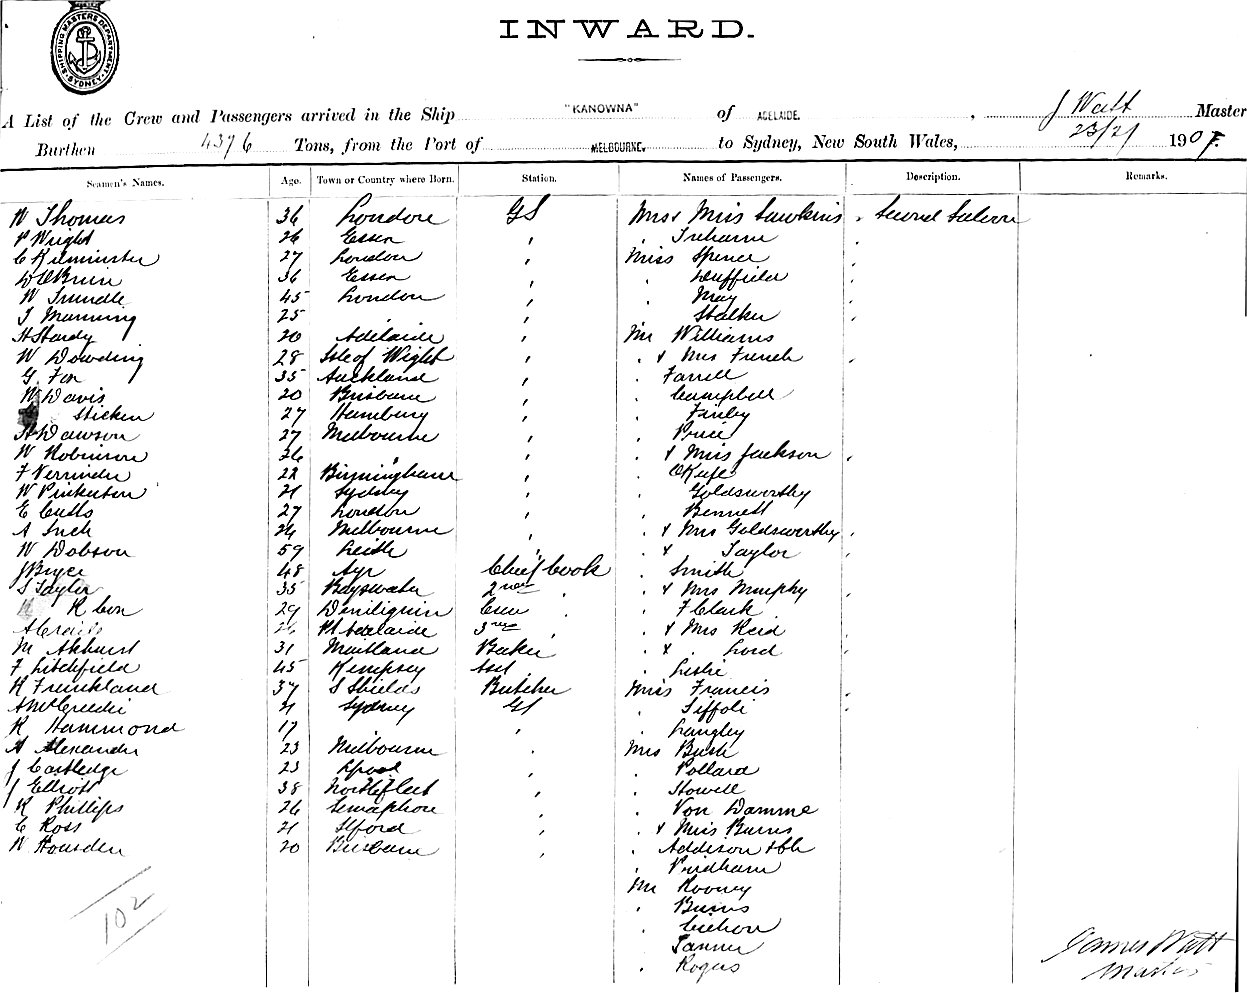 SHIPPING MASTERS DEPARTMENT SYDNEY
INWARD.
A List of the Crew and Passengers arrived in the Ship "KANOWNA" of ADELAIDE, J Watt Master
Burthen 4376 Tons, from the Port of MELBOURNE. to Sydney, New South Wales, 23/2/ 1907.
Seamen's Names. Age. Town or Country where Born. Station. Names of Passengers. Description. Remarks.
W Thomas 36 London GS Mrs & Miss Hawkins " Second Saloon
P Wright 26 Essex " " Treharne "
C Kilminster 27 London " Miss Spence "
W O'Brien 36 Essex " " Duffield "
W Trundle 45 London " " May "
J Manning 25 " " Stalker "
H Hardy 20 Adelaide " Mr Williams
W Dowding 28 Isle of Wight " " & Mrs French "
G. Fox 35 Auckland " " Farrell
W Davis 20 Brisbane " " Campbell
Sticken 27 Hamburg " " Finley
H Dawson 27 Melbourne " " Price
W Robinson 26 " " " & Miss Jackson "
F Verrinder 22 Birmingham " " O'Keefe
W Pinkerton 21 Sydney " " Goldsworthy
E Cutts 27 London " " Bennett
A Inch 26 Melbourne " " & Mrs Goldsworthy "
W Dobson 59 Leith " " & Taylor "
J Bryce 48 Ayr Chief Cook " Smith
S Taylor 35 Bayswater 2nd " " & Mrs Murphy "
R Con 29 Deniliquin Crew " " F Clark
A 26 Pt Adelaide 3rd " " & Mrs Reid "
M Akhurst 31 Maitland Baker " & " Lord "
F Litchfield 45 Kempsey Asst " Leslie
R Frinkland 37 S Shields Butcher Miss Francis "
A McCreedie 21 Sydney GS " Tiffoli "
R Hammond 17 " " Langley
A Alexander 23 Melbourne " Mrs Bush
J Cartledge 23 Lpool " " Pollard
J Elliott 38 Northfleet " " Howell
R Phillips 26 Semaphore " " Von Damme
C Ross 21 Ilford " " & Miss Burns
W Housden 20 Brisbane " " Addison & Ch
" Pridham
Mr Rooney
" Burns
"
Tanner
" Rogers
102
James Watt
Master